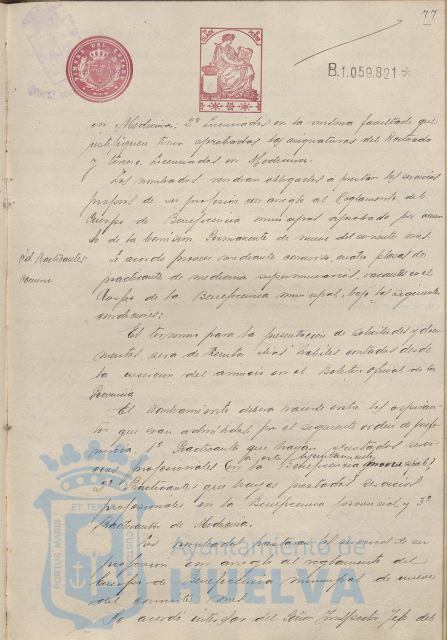 77
TIMBRE DEL ESTADO
B.1.059.821*
en Medicina; 2º Licenciados en la misma facultad que
justifiquen tener aprobadas las asignaturas del Doctorado
y tercero, Licenciados en Medicina.
Los nombrados vendran obligados a prestar los servicios
propios de su profesion con arreglo al Reglamento del
Cuerpo de Beneficencia municipal aprobado por acuer
do de la Comision Permanente de nueve del corriente mes.
Id. Practicantes:
Se acordó proveer mediante concurso, cuatro plazas de
practicante de medicina supernumerarios, vacantes en el
Cuerpo de la Beneficencia municipal, bajo las siguientes
condiciones:
El termino para la presentacion de solicitudes y docu
mentos, sera de treinta dias habiles contados desde
la insercion del anuncio en el Boletin oficial de la
Provincia
El nombramiento debera hacerse entre los aspiran-
tes que sean admitidos por el siguiente orden de prefe-
rencia: 1º Practicantes que hayan prestados servi-
este Ayuntamiento
cios profesionales en la Beneficencia municipal;
2º Practicantes que hayan prestados servicios
profesionales en la Beneficencia provincial y 3º
Practicantes de Medicina.
Los nombrados prestaran el servicio de su
profesion con arreglo al reglamento del
Cuerpo de Beneficencia municipal de nueve
del corriente mes.
Se acordó interesar del Señor Inspector Jefe del
PORTUS MARIS ET TERRAE CUSTODIA
Ayuntamiento de
HUELVA